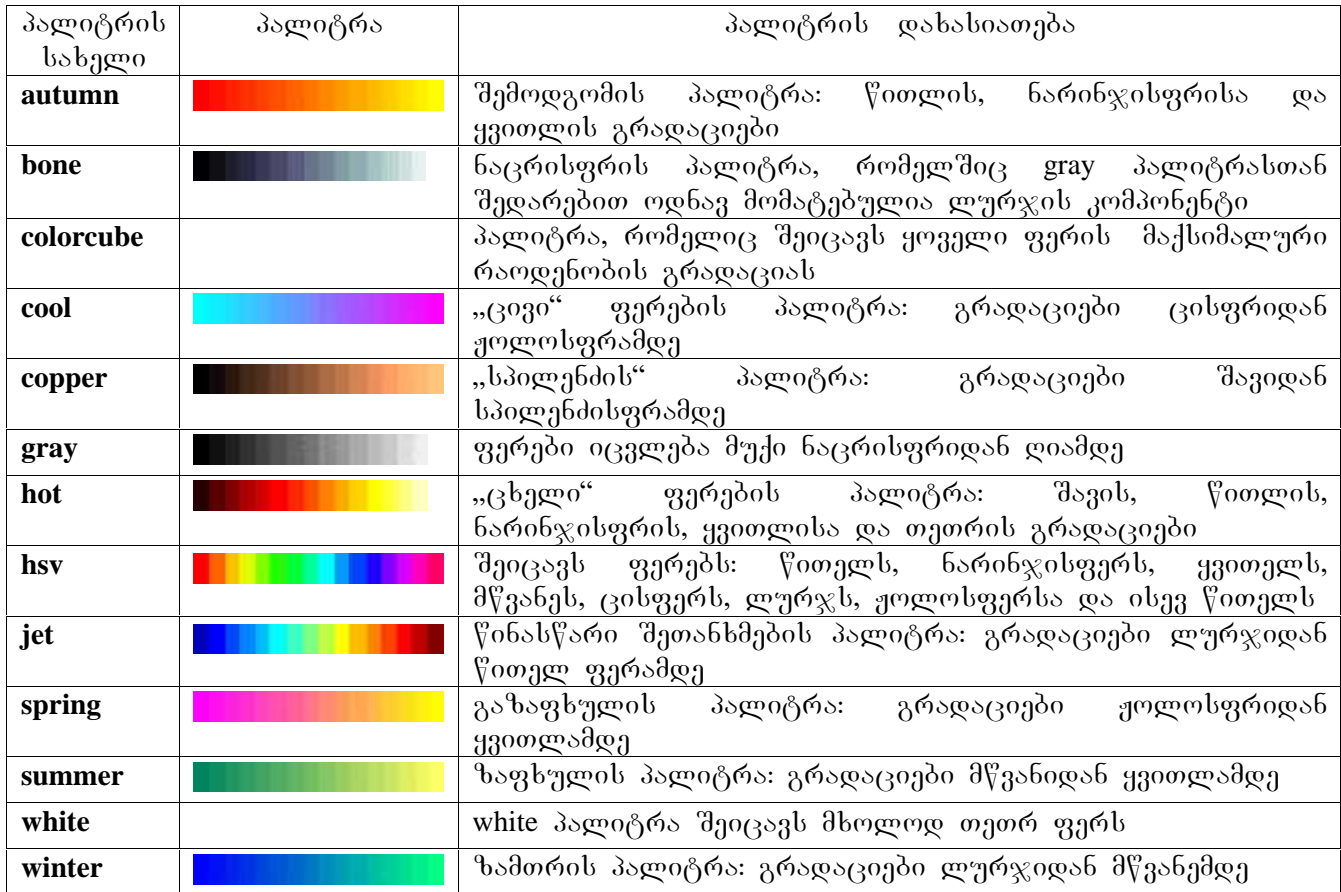 პალიტრის სახელი
პალიტრა
პალიტრის დახასიათება
autumn
შემოდგომის პალიტრა: წითლის, ნარინჯისფრისა და
ყვითლის გრადაციები
bone
ნაცრისფრის პალიტრა, რომელშიც gray პალიტრასთან
შედარებით ოდნავ მომატებულია ლურჯის კომპონენტი
colorcube
პალიტრა, რომელიც შეიცავს ყოველი ფერის მაქსიმალური
რაოდენობის გრადაციას
cool
„ცივი“ ფერების პალიტრა: გრადაციები ცისფრიდან
ჟოლოსფრამდე
copper
„სპილენძის“ პალიტრა: გრადაციები შავიდან
სპილენძისფრამდე
gray
ფერები იცვლება მუქი ნაცრისფრიდან ღიამდე
hot
„ცხელი“ ფერების პალიტრა: შავის, წითლის,
ნარინჯისფრის, ყვითლისა და თეთრის გრადაციები
hsv
შეიცავს ფერებს: წითელს, ნარინჯისფერს, ყვითელს,
მწვანეს, ცისფერს, ლურჯს, ჟოლოსფერსა და ისევ წითელს
jet
წინასწარი შეთანხმების პალიტრა: გრადაციები ლურჯიდან
წითელ ფერამდე
spring
გაზაფხულის პალიტრა: გრადაციები ჟოლოსფრიდან
ყვითლამდე
summer
ზაფხულის პალიტრა: გრადაციები მწვანიდან ყვითლამდე
white
white პალიტრა შეიცავს მხოლოდ თეთრ ფერს
winter
ზამთრის პალიტრა: გრადაციები ლურჯიდან მწვანემდე